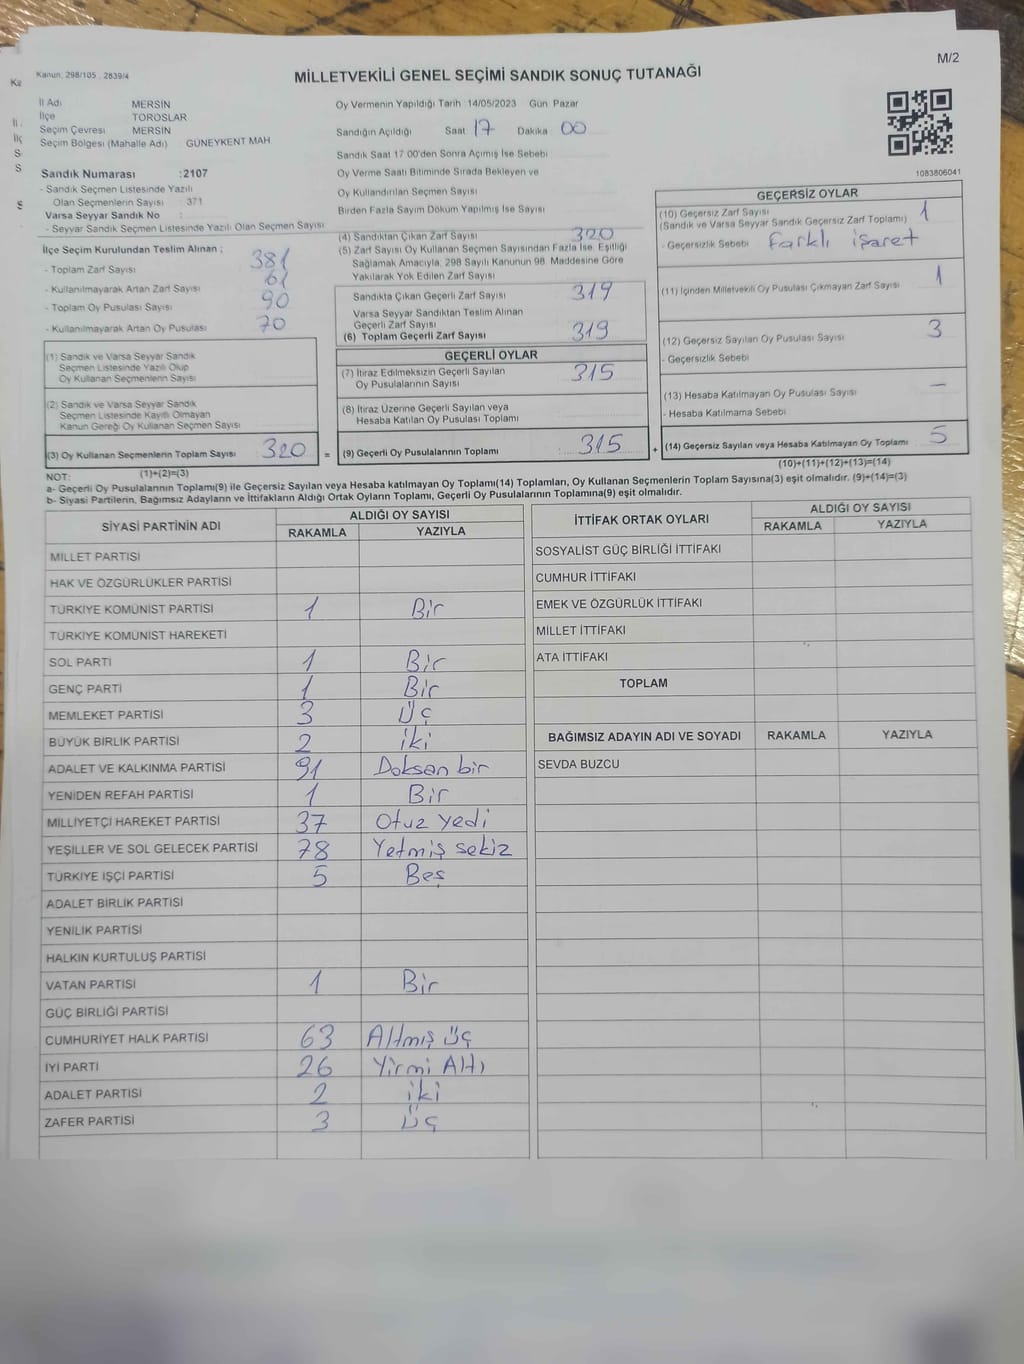 Kanun, 298/105 , 2839/4
M/2
MİLLETVEKİLİ GENEL SEÇİMİ SANDIK SONUÇ TUTANAĞI
İl Adı MERSİN
İlçe TOROSLAR
Seçim Çevresi MERSİN
Seçim Bölgesi (Mahalle Adı) GÜNEYKENT MAH
Sandık Numarası :2107
- Sandık Seçmen Listesinde Yazılı
Olan Seçmenlerin Sayısı : 371
Varsa Seyyar Sandık No :
- Seyyar Sandık Seçmen Listesinde Yazılı Olan Seçmen Sayısı
Oy Vermenin Yapıldığı Tarih 14/05/2023 Gün Pazar
Sandığın Açıldığı Saat 17 Dakika 00
Sandık Saat 17 00'den Sonra Açımış İse Sebebi
Oy Verme Saati Bitiminde Sırada Bekleyen ve
Oy Kullandırılan Seçmen Sayısı
Birden Fazla Sayım Döküm Yapılmış İse Sayısı
1083806041
İlçe Seçim Kurulundan Teslim Alınan ;
- Toplam Zarf Sayısı 381
- Kullanılmayarak Artan Zarf Sayısı 61
- Toplam Oy Pusulası Sayısı 90
- Kullanılmayarak Artan Oy Pusulası 70
(1) Sandık ve Varsa Seyyar Sandık
Seçmen Listesinde Yazılı Olup
Oy Kullanan Seçmenlerin Sayısı
(2) Sandık ve Varsa Seyyar Sandık
Seçmen Listesinde Kayıtlı Olmayan
Kanun Gereği Oy Kullanan Seçmen Sayısı
(3) Oy Kullanan Seçmenlerin Toplam Sayısı 320 =
(1)+(2)=(3)
(4) Sandıktan Çıkan Zarf Sayısı 320
(5) Zarf Sayısı Oy Kullanan Seçmen Sayısından Fazla İse, Eşitliği
Sağlamak Amacıyla, 298 Sayılı Kanunun 98. Maddesine Göre
Yakılarak Yok Edilen Zarf Sayısı
Sandıkta Çıkan Geçerli Zarf Sayısı 319
Varsa Seyyar Sandıktan Teslim Alınan
Geçerli Zarf Sayısı
(6) Toplam Geçerli Zarf Sayısı 319
GEÇERLİ OYLAR
(7) İtiraz Edilmeksizin Geçerli Sayılan
Oy Pusulalarının Sayısı 315
(8) İtiraz Üzerine Geçerli Sayılan veya
Hesaba Katılan Oy Pusulası Toplamı
(9) Geçerli Oy Pusulalarının Toplamı : 315 +
GEÇERSİZ OYLAR
(10) Geçersiz Zarf Sayısı 1
(Sandık ve Varsa Seyyar Sandık Geçersiz Zarf Toplamı)
- Geçersizlik Sebebi Farklı işaret
(11) İçinden Milletvekili Oy Pusulası Çıkmayan Zarf Sayısı 1
(12) Geçersiz Sayılan Oy Pusulası Sayısı 3
- Geçersizlik Sebebi
(13) Hesaba Katılmayan Oy Pusulası Sayısı —
- Hesaba Katılmama Sebebi
(14) Geçersiz Sayılan veya Hesaba Katılmayan Oy Toplamı 5
(10)+(11)+(12)+(13)=(14)
NOT:
a- Geçerli Oy Pusulalarının Toplamı(9) ile Geçersiz Sayılan veya Hesaba katılmayan Oy Toplamı(14) Toplamları, Oy Kullanan Seçmenlerin Toplam Sayısına(3) eşit olmalıdır. (9)+(14)=(3)
b- Siyasi Partilerin, Bağımsız Adayların ve İttifakların Aldığı Ortak Oyların Toplamı, Geçerli Oy Pusulalarının Toplamına(9) eşit olmalıdır.
SİYASİ PARTİNİN ADI ALDIĞI OY SAYISI
RAKAMLA YAZIYLA
MİLLET PARTİSİ
HAK VE ÖZGÜRLÜKLER PARTİSİ
TÜRKİYE KOMÜNİST PARTİSİ 1 Bir
TÜRKİYE KOMÜNİST HAREKETİ
SOL PARTİ 1 Bir
GENÇ PARTİ 1 Bir
MEMLEKET PARTİSİ 3 Üç
BÜYÜK BİRLİK PARTİSİ 2 iki
ADALET VE KALKINMA PARTİSİ 91 Doksan bir
YENİDEN REFAH PARTİSİ 1 Bir
MİLLİYETÇİ HAREKET PARTİSİ 37 Otuz yedi
YEŞİLLER VE SOL GELECEK PARTİSİ 78 Yetmiş sekiz
TÜRKİYE İŞÇİ PARTİSİ 5 Beş
ADALET BİRLİK PARTİSİ
YENİLİK PARTİSİ
HALKIN KURTULUŞ PARTİSİ
VATAN PARTİSİ 1 Bir
GÜÇ BİRLİĞİ PARTİSİ
CUMHURİYET HALK PARTİSİ 63 Altmış üç
İYİ PARTİ 26 Yirmi Altı
ADALET PARTİSİ 2 iki
ZAFER PARTİSİ 3 Üç
İTTİFAK ORTAK OYLARI ALDIĞI OY SAYISI
RAKAMLA YAZIYLA
SOSYALİST GÜÇ BİRLİĞİ İTTİFAKI
CUMHUR İTTİFAKI
EMEK VE ÖZGÜRLÜK İTTİFAKI
MİLLET İTTİFAKI
ATA İTTİFAKI
TOPLAM
BAĞIMSIZ ADAYIN ADI VE SOYADI RAKAMLA YAZIYLA
SEVDA BUZCU